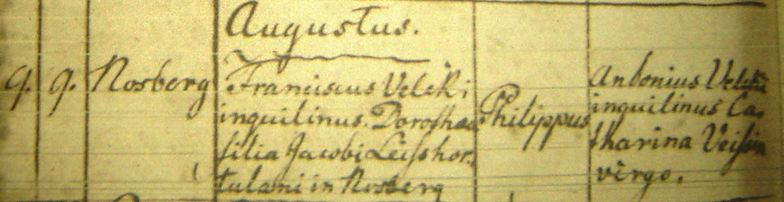 Augustus.
9. 9. Rosberg
Franciscus Velcki
inquilinus. Dorothea
filia Jacobi Leiss hor,
tulani in Rosberg
Philippus
Antonius Velcki
inquilinus Ca,
tharina
virgo.